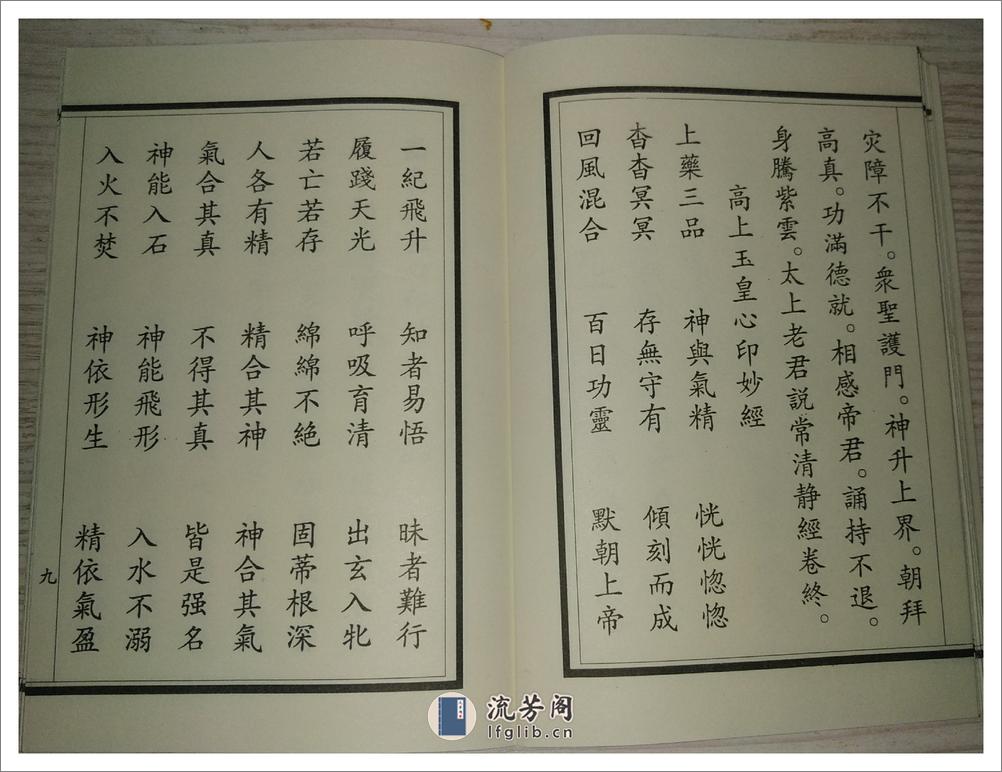 灾障不干。衆聖護門。神升上界。朝拜
高真。功滿德就。相感帝君。誦持不退。
身騰紫雲。太上老君説常清静經卷終。
高上玉皇心印妙經
上藥三品 神與氣精 恍恍惚惚
杳杳冥冥 存無守有 傾刻而成
回風混合 百日功靈 默朝上帝
一紀飛升 知者易悟 昧者難行
履踐天光 呼吸育清 出玄入牝
若亡若存 綿綿不絶 固蒂根深
人各有精 精合其神 神合其氣
氣合其真 不得其真 皆是强名
神能入石 神能飛形 入水不溺
入火不焚 神依形生 精依氣盈
九
流芳阁
lfglib.cn